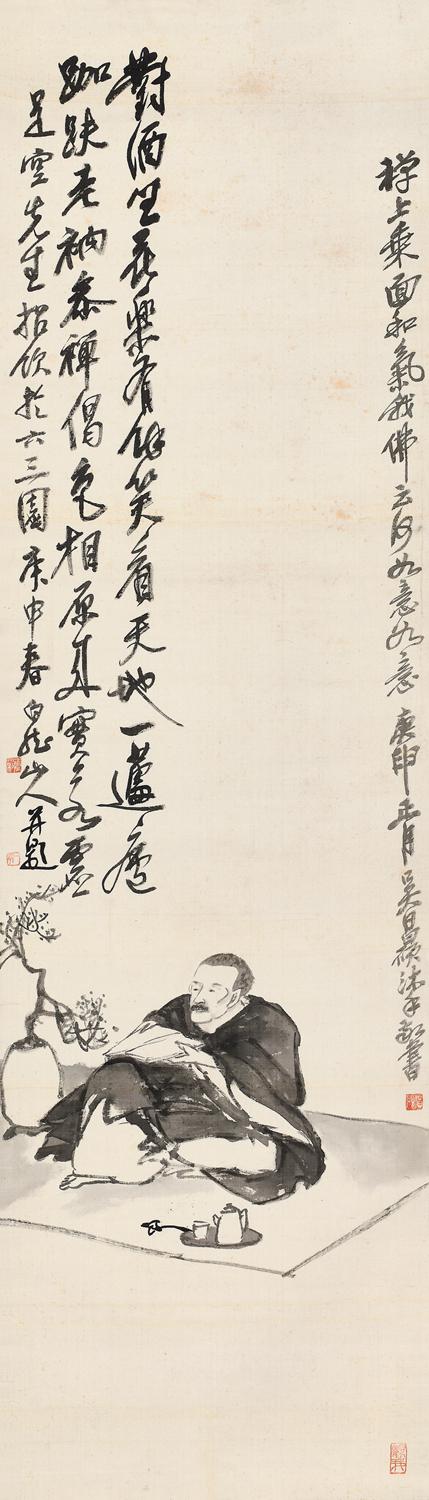 禅上乘面和氣我佛云何如意如意庚申正月吳昌碩沐手敬書
對酒坐花樂有餘笑看天地一蘧廬
跏趺老衲參禪偈色相原來實若虛
是空先生招飲於六三園庚申春白龍山人并題